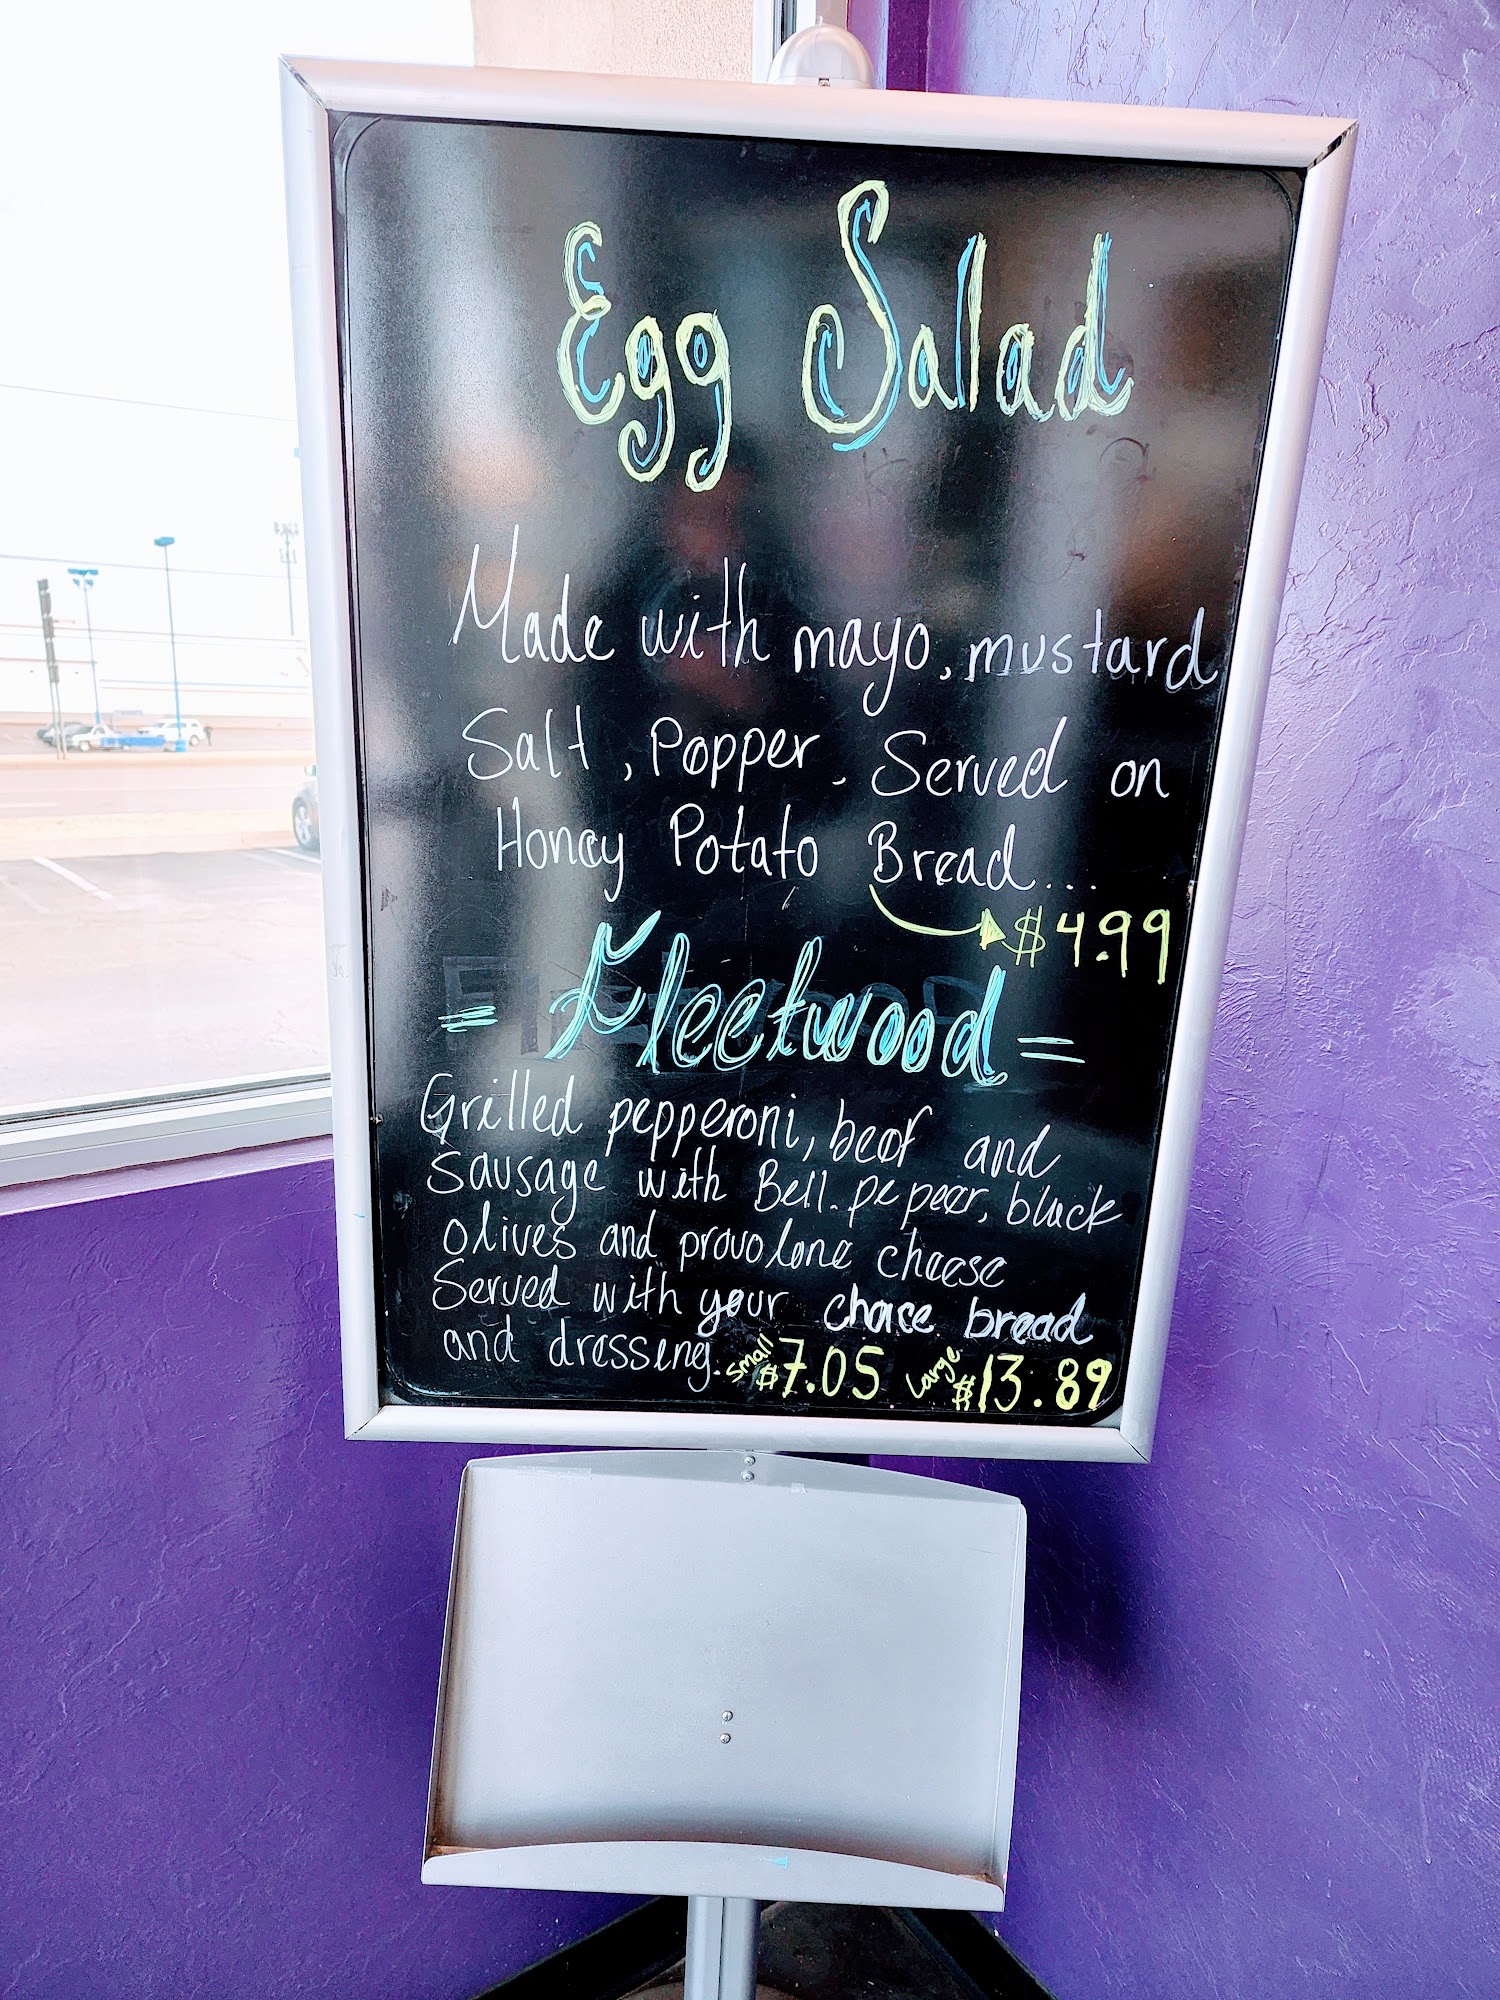 Egg Salad
Made with mayo, mustard
Salt, Pepper, Served on
Honey Potato Bread...
$4.99
= Fleetwood =
Grilled pepperoni, beef and
Sausage with Bell. pepeer, black
olives and provolone cheese
Served with your choice bread
and dressing. Small $7.05 Large $13.89